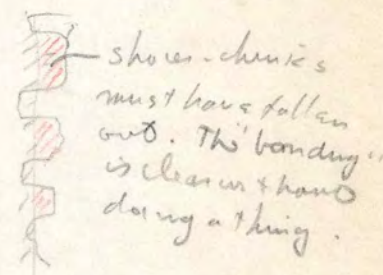 shows - chunks
must have fallen
out. The "bonding"
is clearer than
doing a thing.